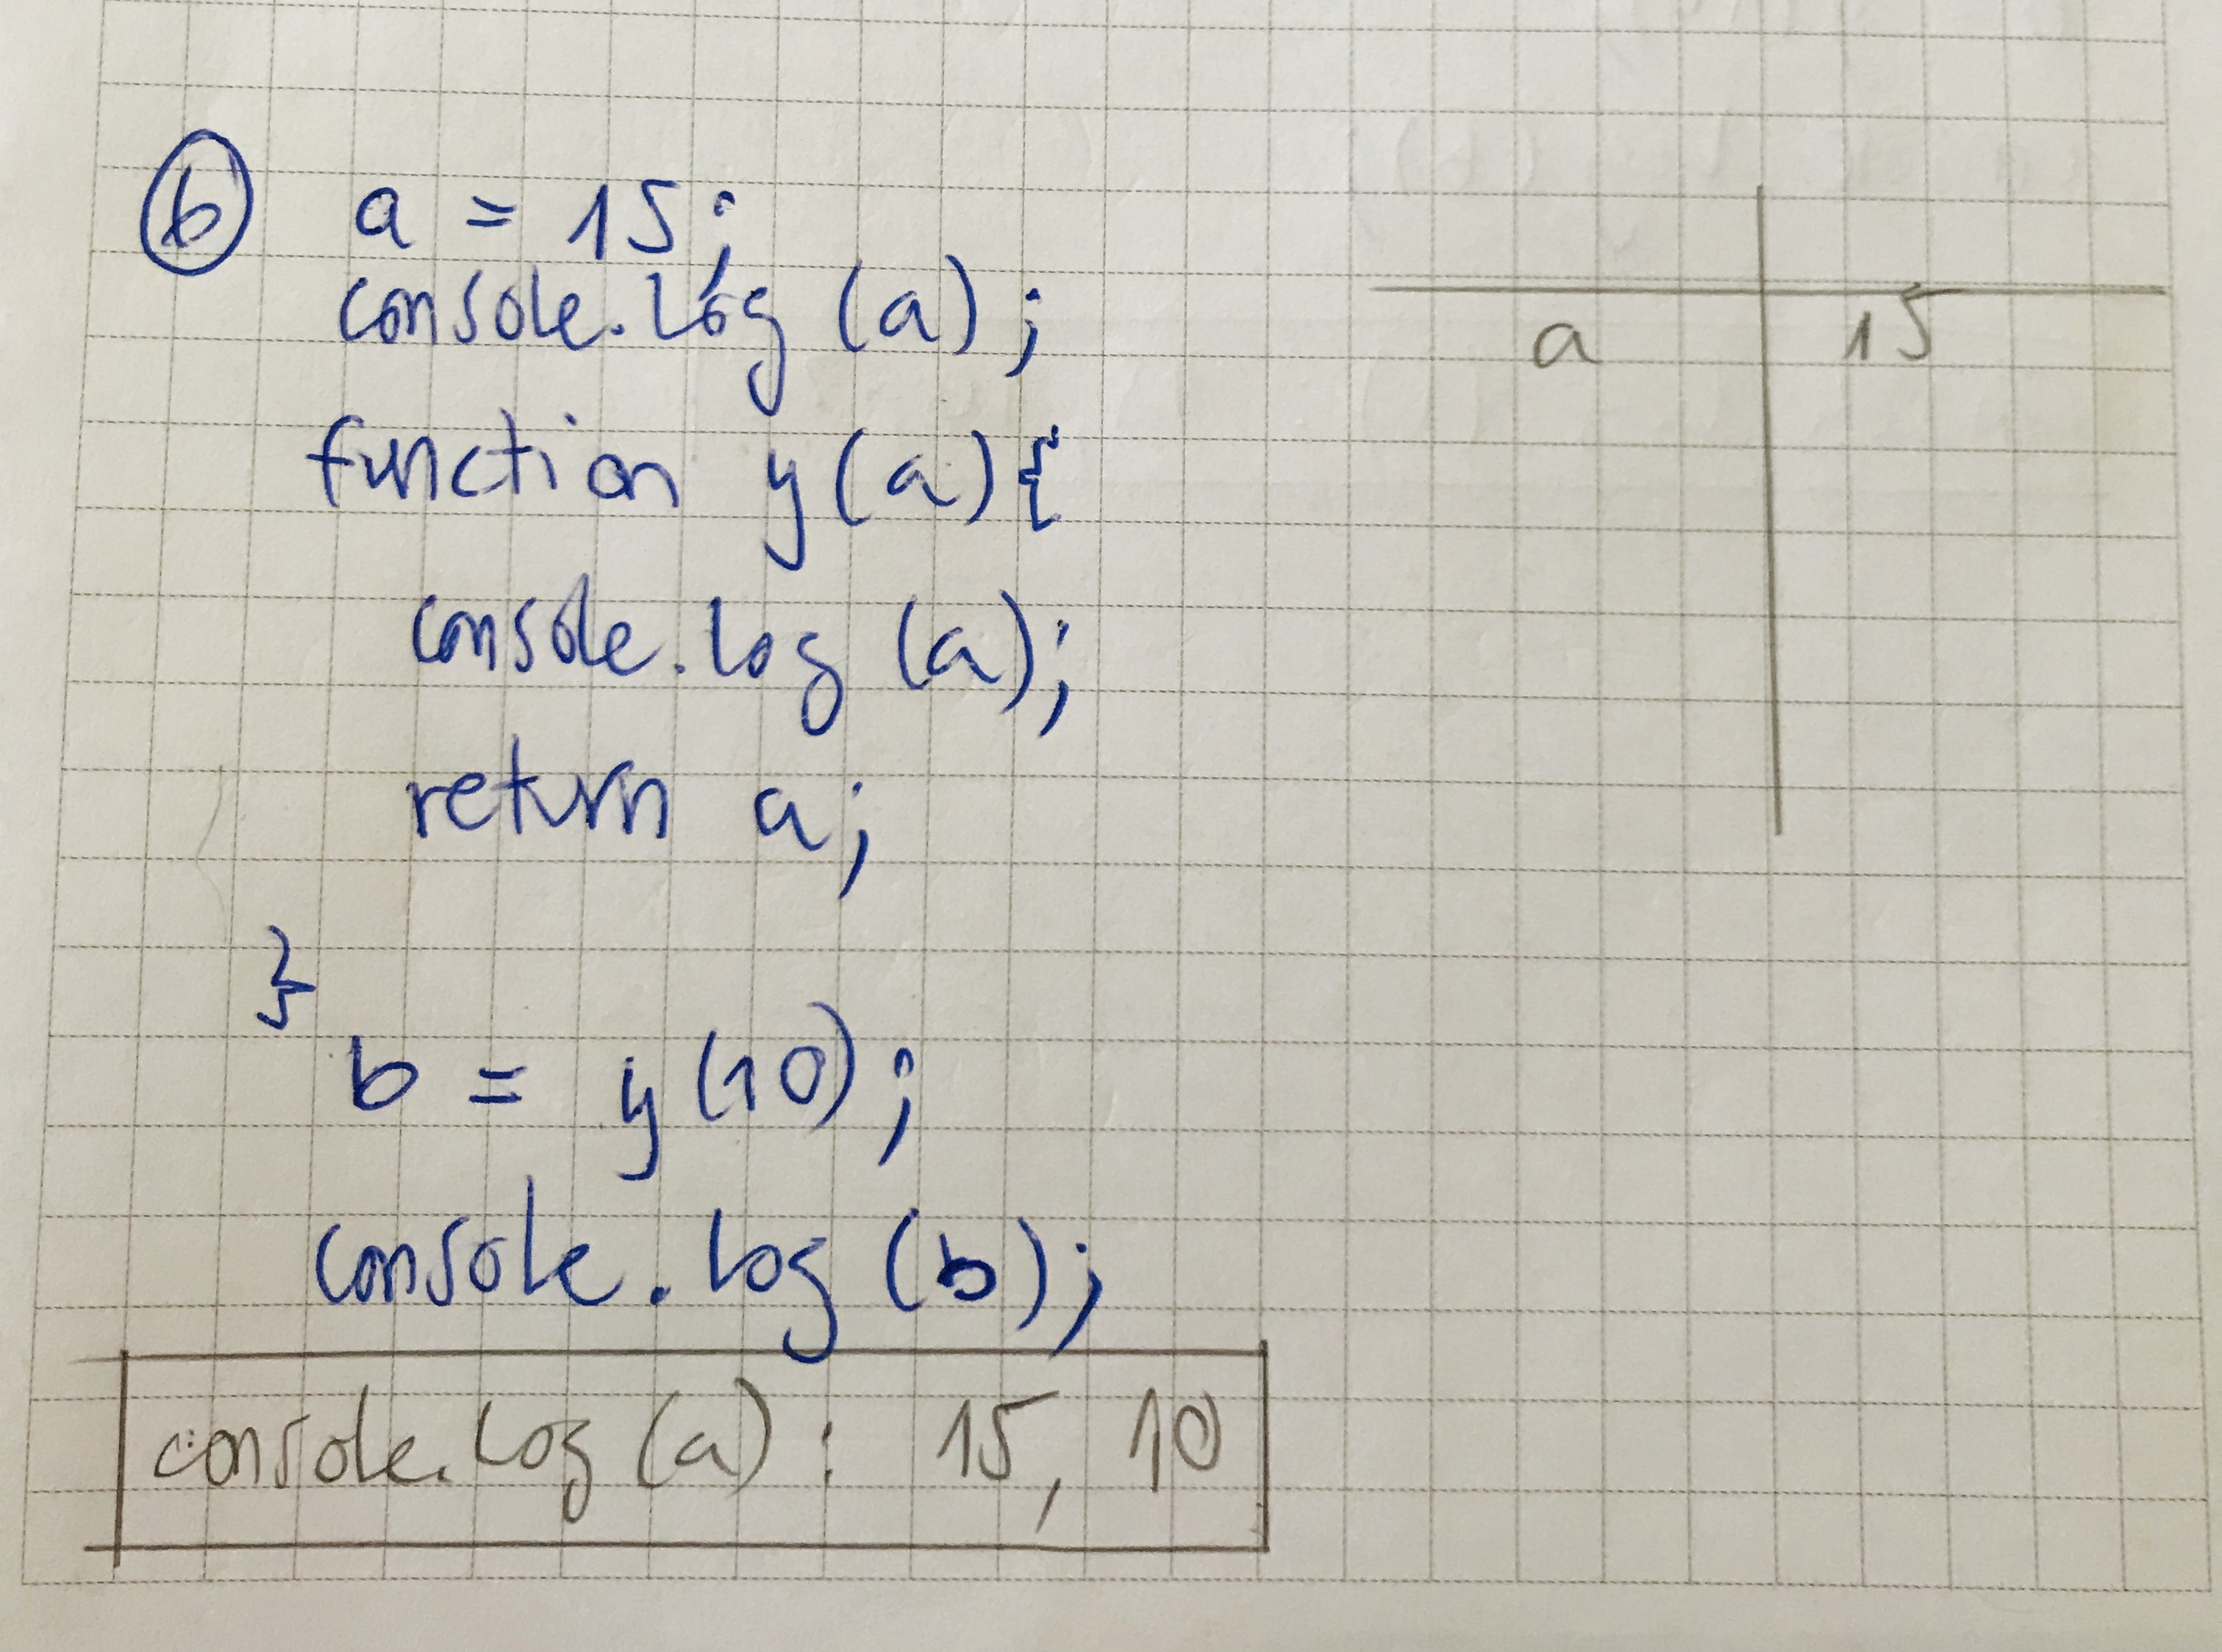 b a = 15;
console.log (a);
function y(a){
console.log (a);
return a;
}
b = y(10);
console.log (b);
console.log (a) : 15, 10
a 15